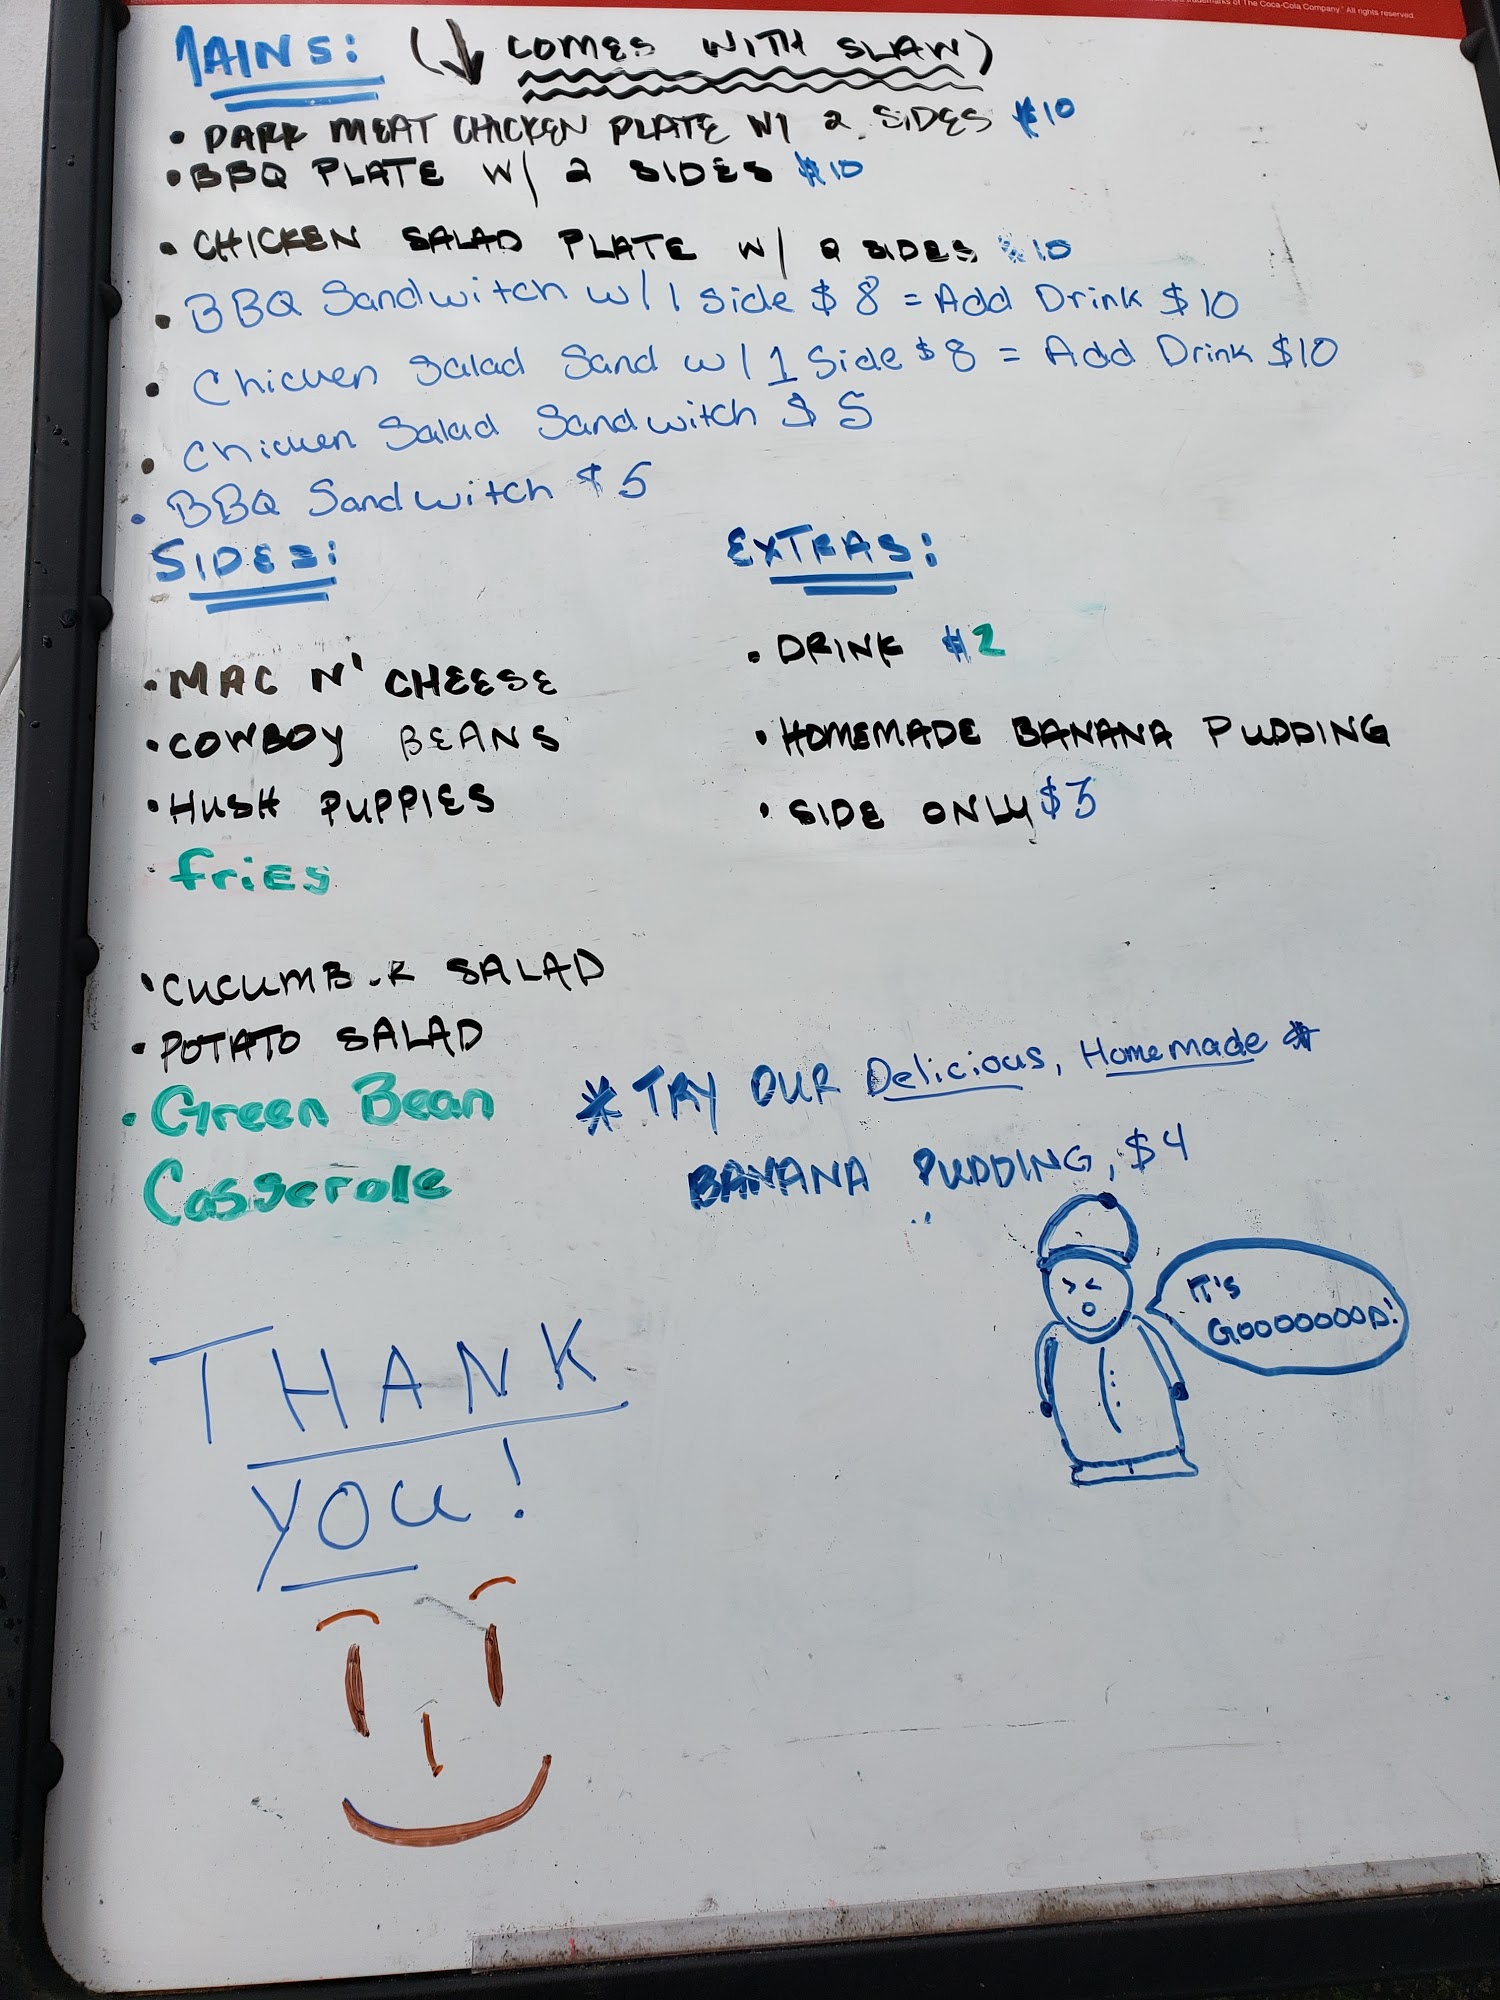 trademarks of The Coca-Cola Company. All rights reserved.
MAINS: (↓ COMES WITH SLAW)
• DARK MEAT CHICKEN PLATE W/ 2 SIDES $10
• BBQ PLATE W/ 2 SIDES $10
• CHICKEN SALAD PLATE W/ 2 SIDES $10
• BBQ Sandwitch w/ 1 side $8 = Add Drink $10
• Chicken Salad Sand w/ 1 Side $8 = Add Drink $10
• Chicken Salad Sandwitch $5
• BBQ Sandwitch $5
SIDES:
• MAC N' CHEESE
• COWBOY BEANS
• HUSH PUPPIES
• fries
• CUCUMB.R SALAD
• POTATO SALAD
• Green Bean
Casserole
EXTRAS:
• DRINK $2
• HOMEMADE BANANA PUDDING
• SIDE ONLY $3
* TRY OUR Delicious, Homemade *
BANANA PUDDING, $4
IT'S
GOOOOOOOD!
THANK
YOU!